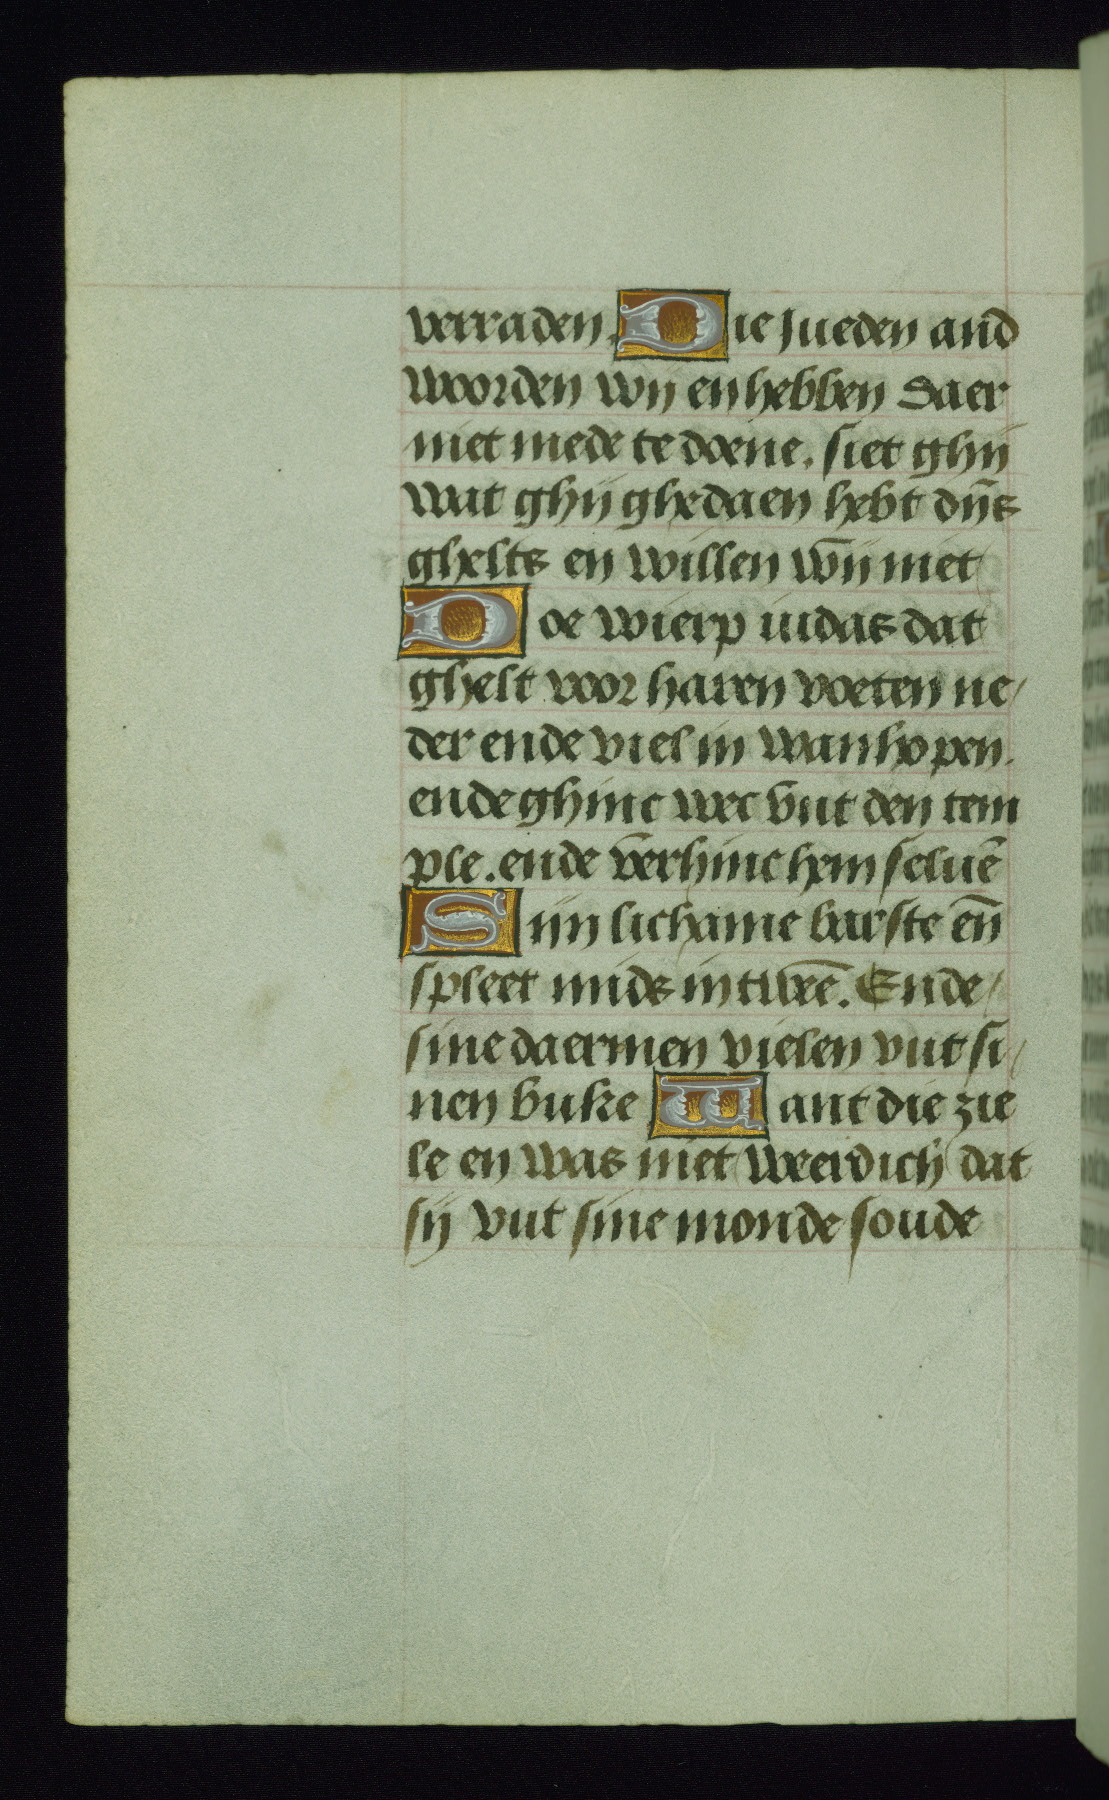 verraden. Die Jueden and
woorden wij en hebben daer
niet mede te doene. siet ghij
wat ghij ghedaen hebt dijs
ghelts en willen wij niet
Doe wierp iudas dat
ghelt voor haren voeten ne/
der ende viel in wanhopen.
ende ghinc wec vut den tem
ple. ende verhinc hem seluē
Sijn lichame barste eñ
spleet mids in tweē. Ende/
sine daermen vielen vut si/
nen buke Want die zie
le en was niet weerdich dat
sij vut sine monde soude